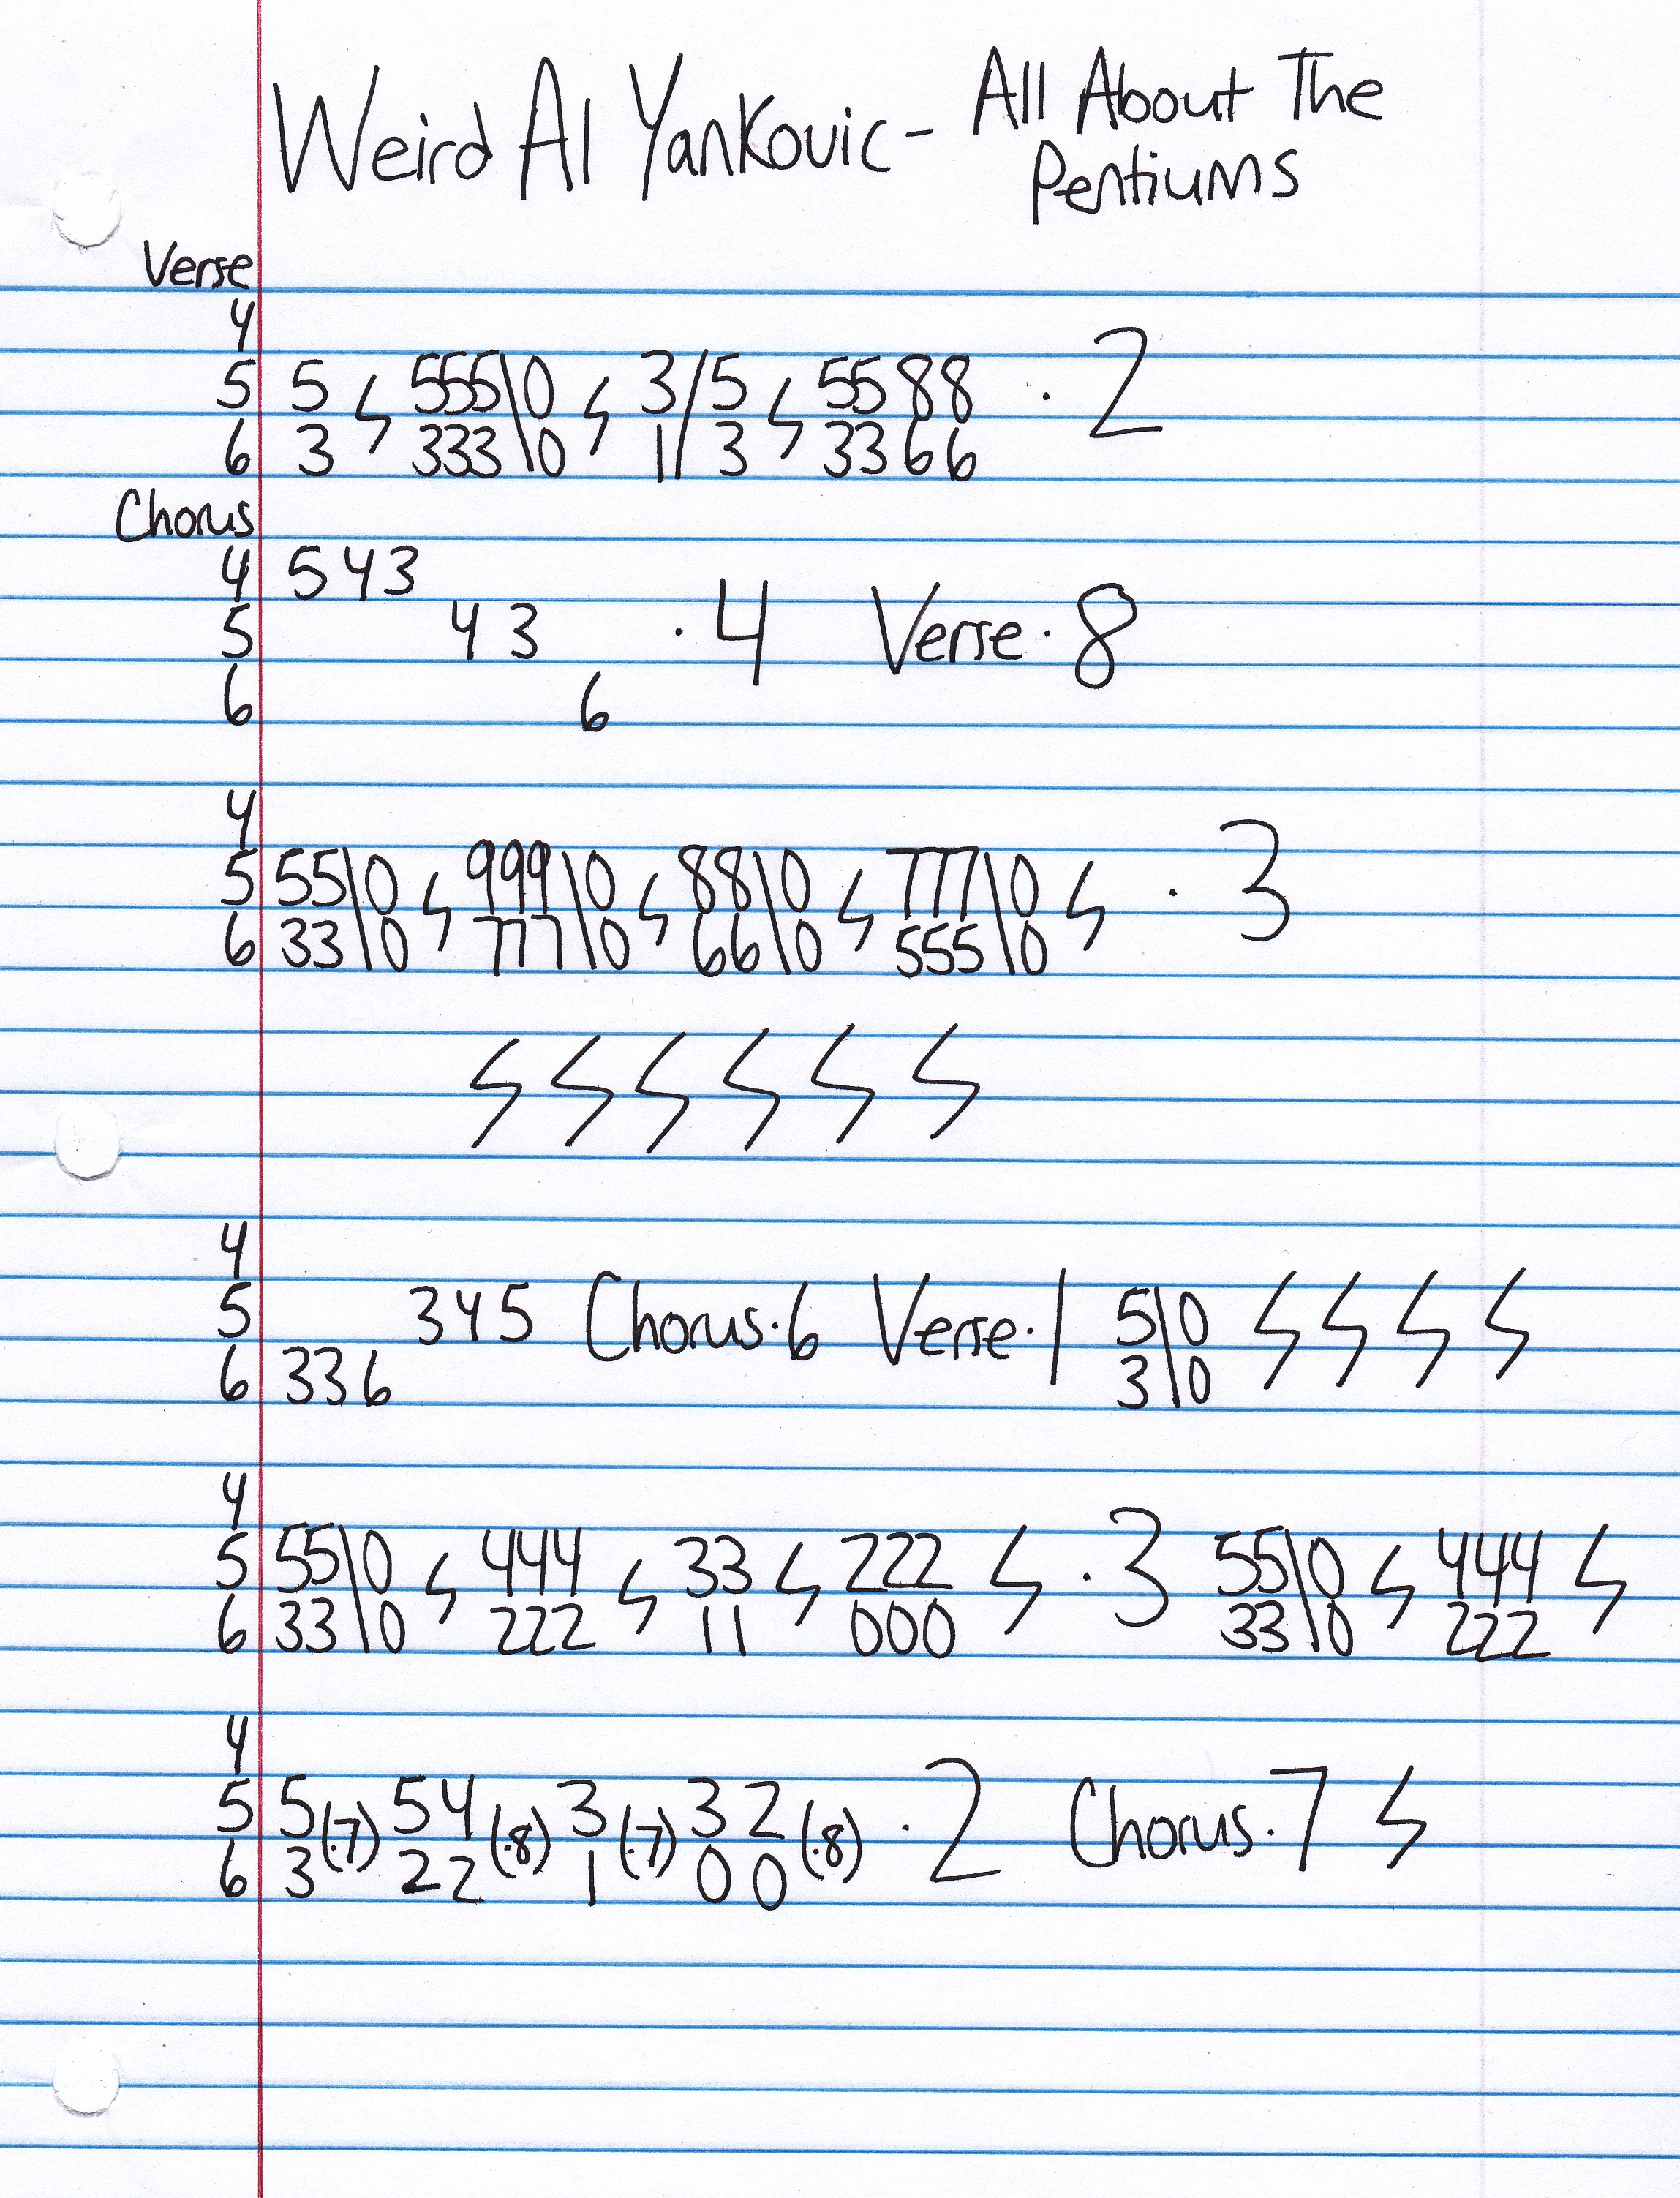 Weird Al Yankovic - All About The
Pentiums
Verse
4
5 5 𝄽 555\0 𝄽 3/5 𝄽 5588 · 2
6 3 333\0 1/3 3366
Chorus
4 543
5 43 · 4 Verse · 8
6 6
4
5 55\0 𝄽 999\0 𝄽 88\0 𝄽 777\0 𝄽 · 3
6 33\0 777\0 66\0 555\0
𝄽 𝄽 𝄽 𝄽 𝄽 𝄽
4
5 345 Chorus·6 Verse·1 5\0 𝄽 𝄽 𝄽 𝄽
6 336 3\0
4
5 55\0 𝄽 444 𝄽 33 𝄽 222 𝄽 · 3 55\0 𝄽 444 𝄽
6 33\0 222 11 000 33\0 222
4
5 5(·7) 54(·8) 3(·7) 32(·8) · 2 Chorus·7 𝄽
6 3 22 1 00